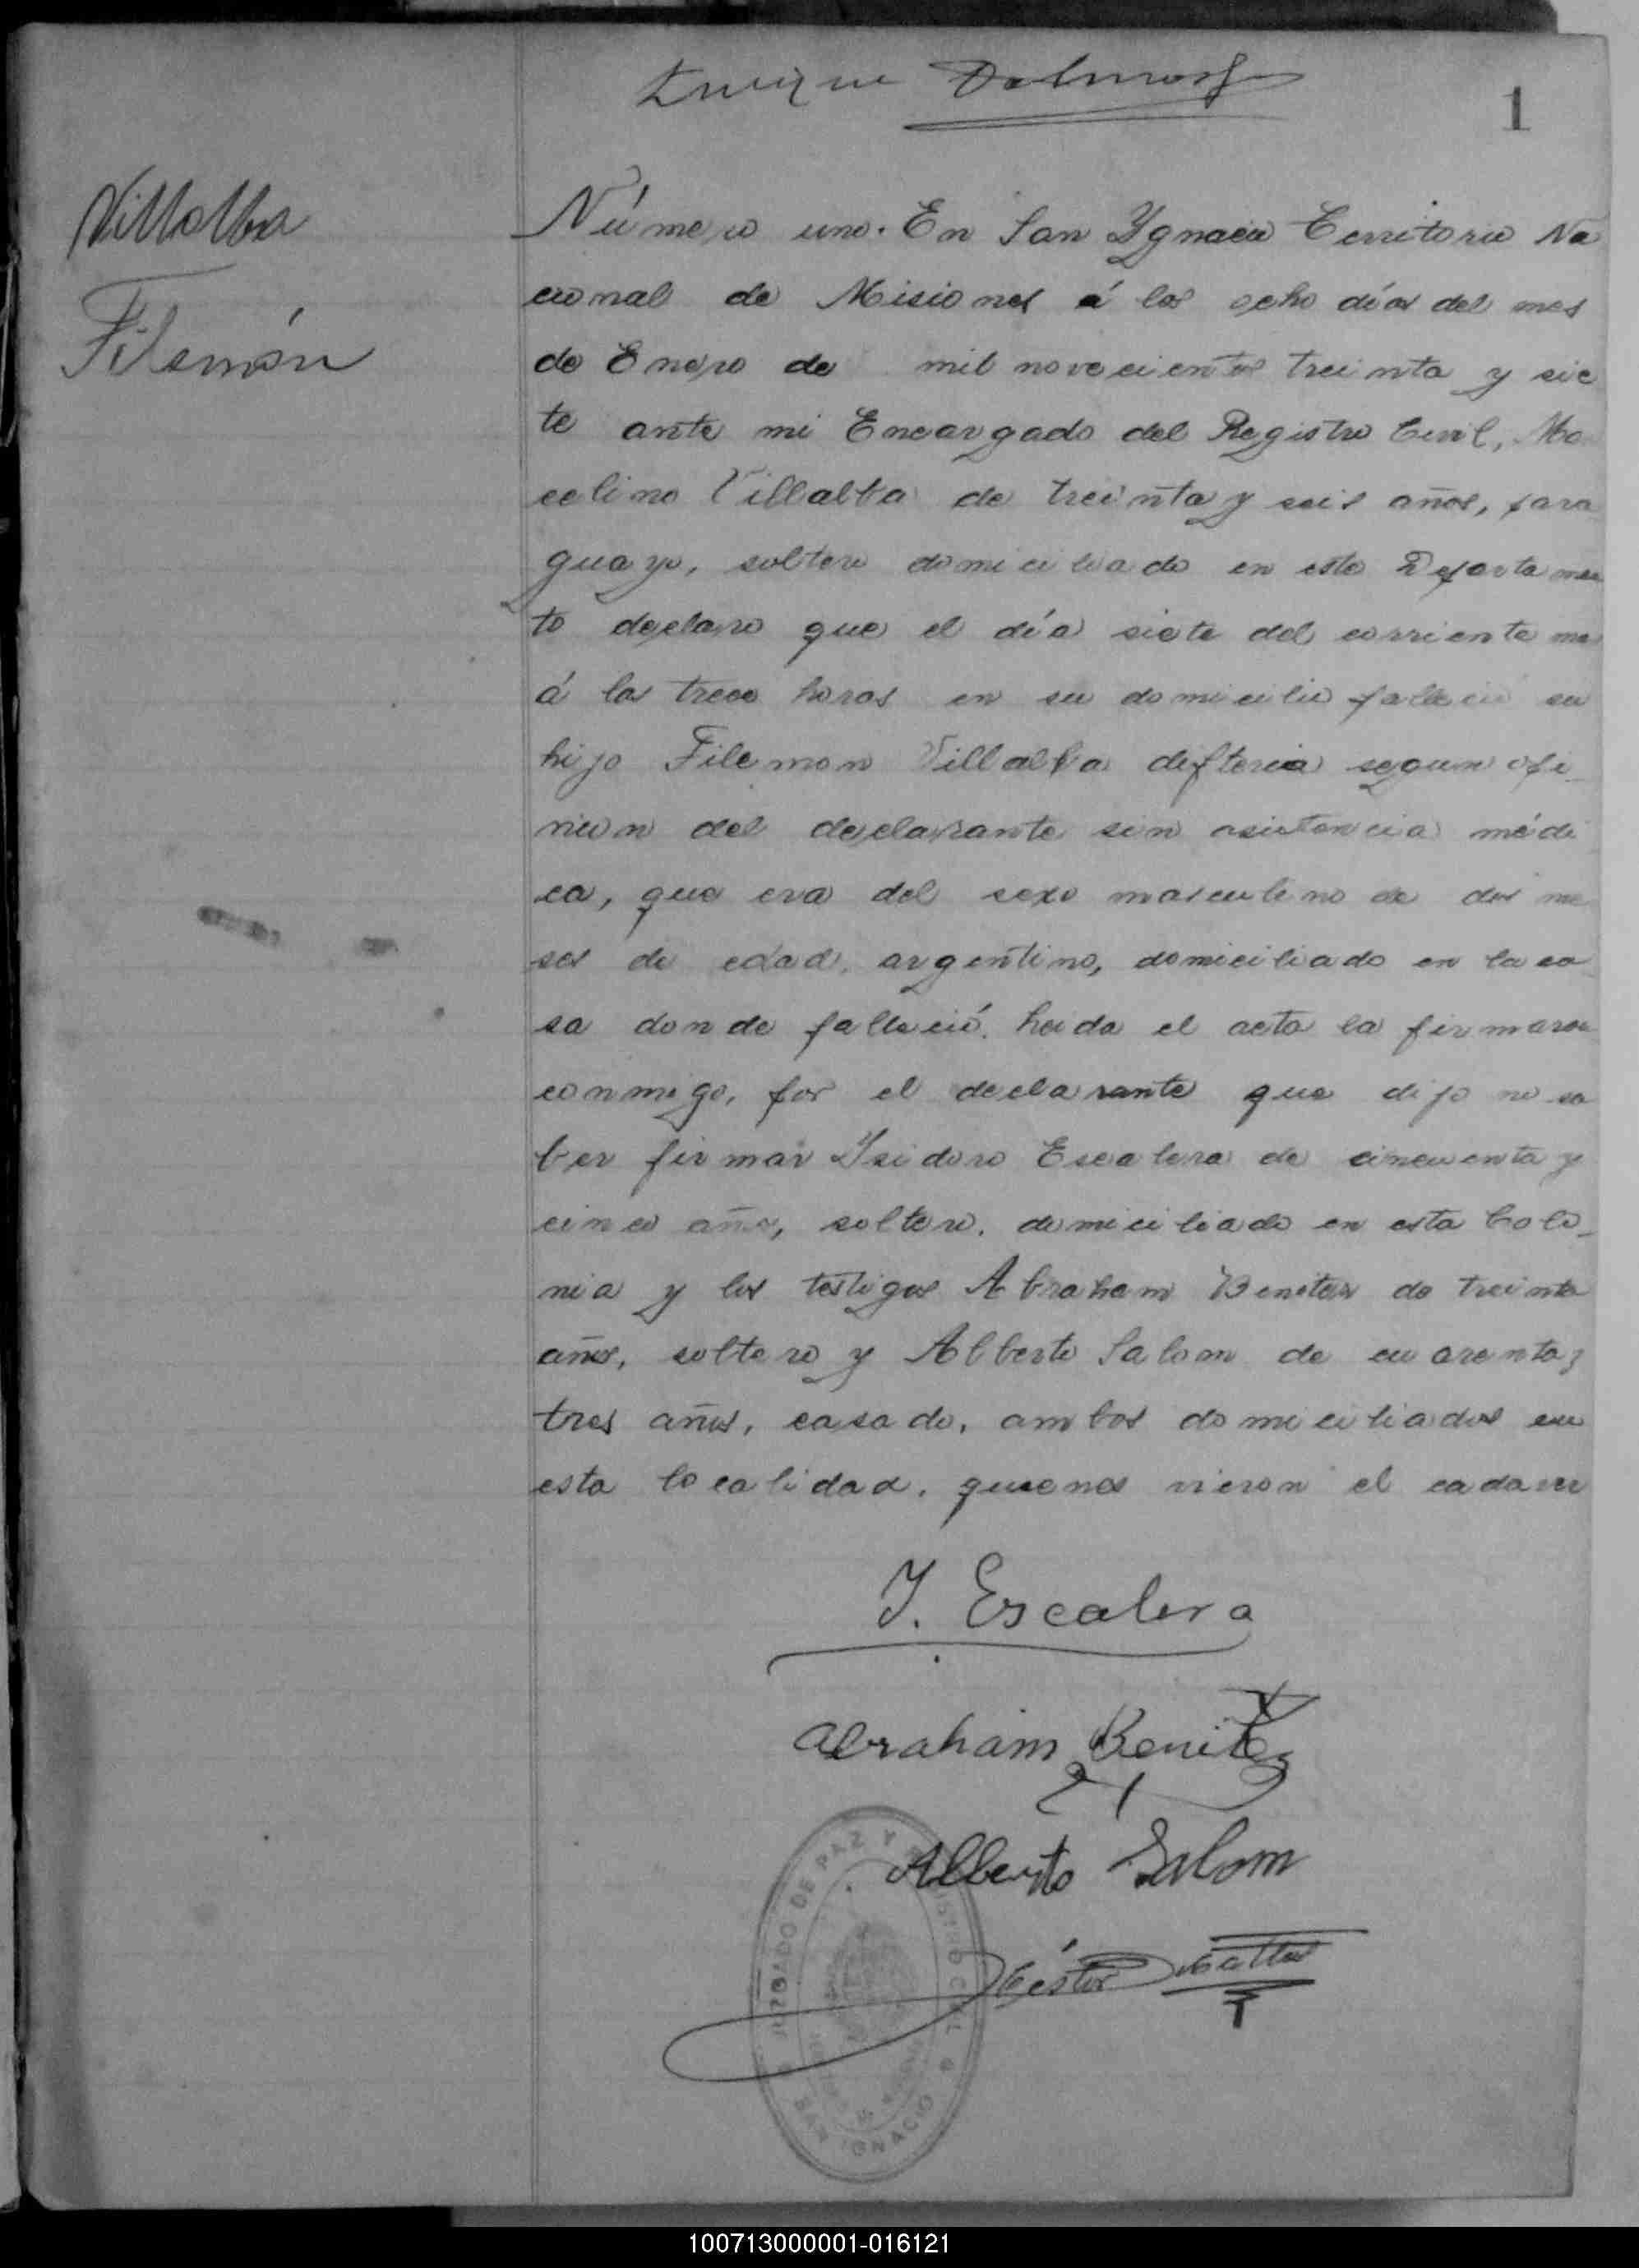 Enrique
1
Villalba
Filemón
Número uno. En San Ygnacio Territorio Na
cional de Misiones á los ocho días del mes
de Enero de mil novecientos treinta y sie
te ante mi Encargado del Registro Civil, Ma
celino Villalba de treinta y seis años, para
guayo, soltero domiciliado en este Departamen
to declaro que el día siete del corriente mes
á las trece horas en su domicilio falleció su
hijo Filemon Villalba difteria segun opi
nion del declarante sin asistencia médi
ca, que era del sexo masculino de dos me
ses de edad, argentino, domiciliado en la ca
sa donde falleció. Leida el acta la firmaron
conmigo, por el declarante que dijo no sa
ber firmar Ysidoro Escalera de cincuenta y
cinco años, soltero, domiciliado en esta Colo-
nia y los testigos Abraham Benitez de treinta
años, soltero y Alberto Salom de cuarenta y
tres años, casado, ambos domiciliados en
esta localidad, quienes vieron el cadaver
Y. Escalera
Abraham Benitez
Alberto Salom
Héstor
JUZGADO DE PAZ Y REGISTRO CIVIL
SAN IGNACIO
100713000001-016121